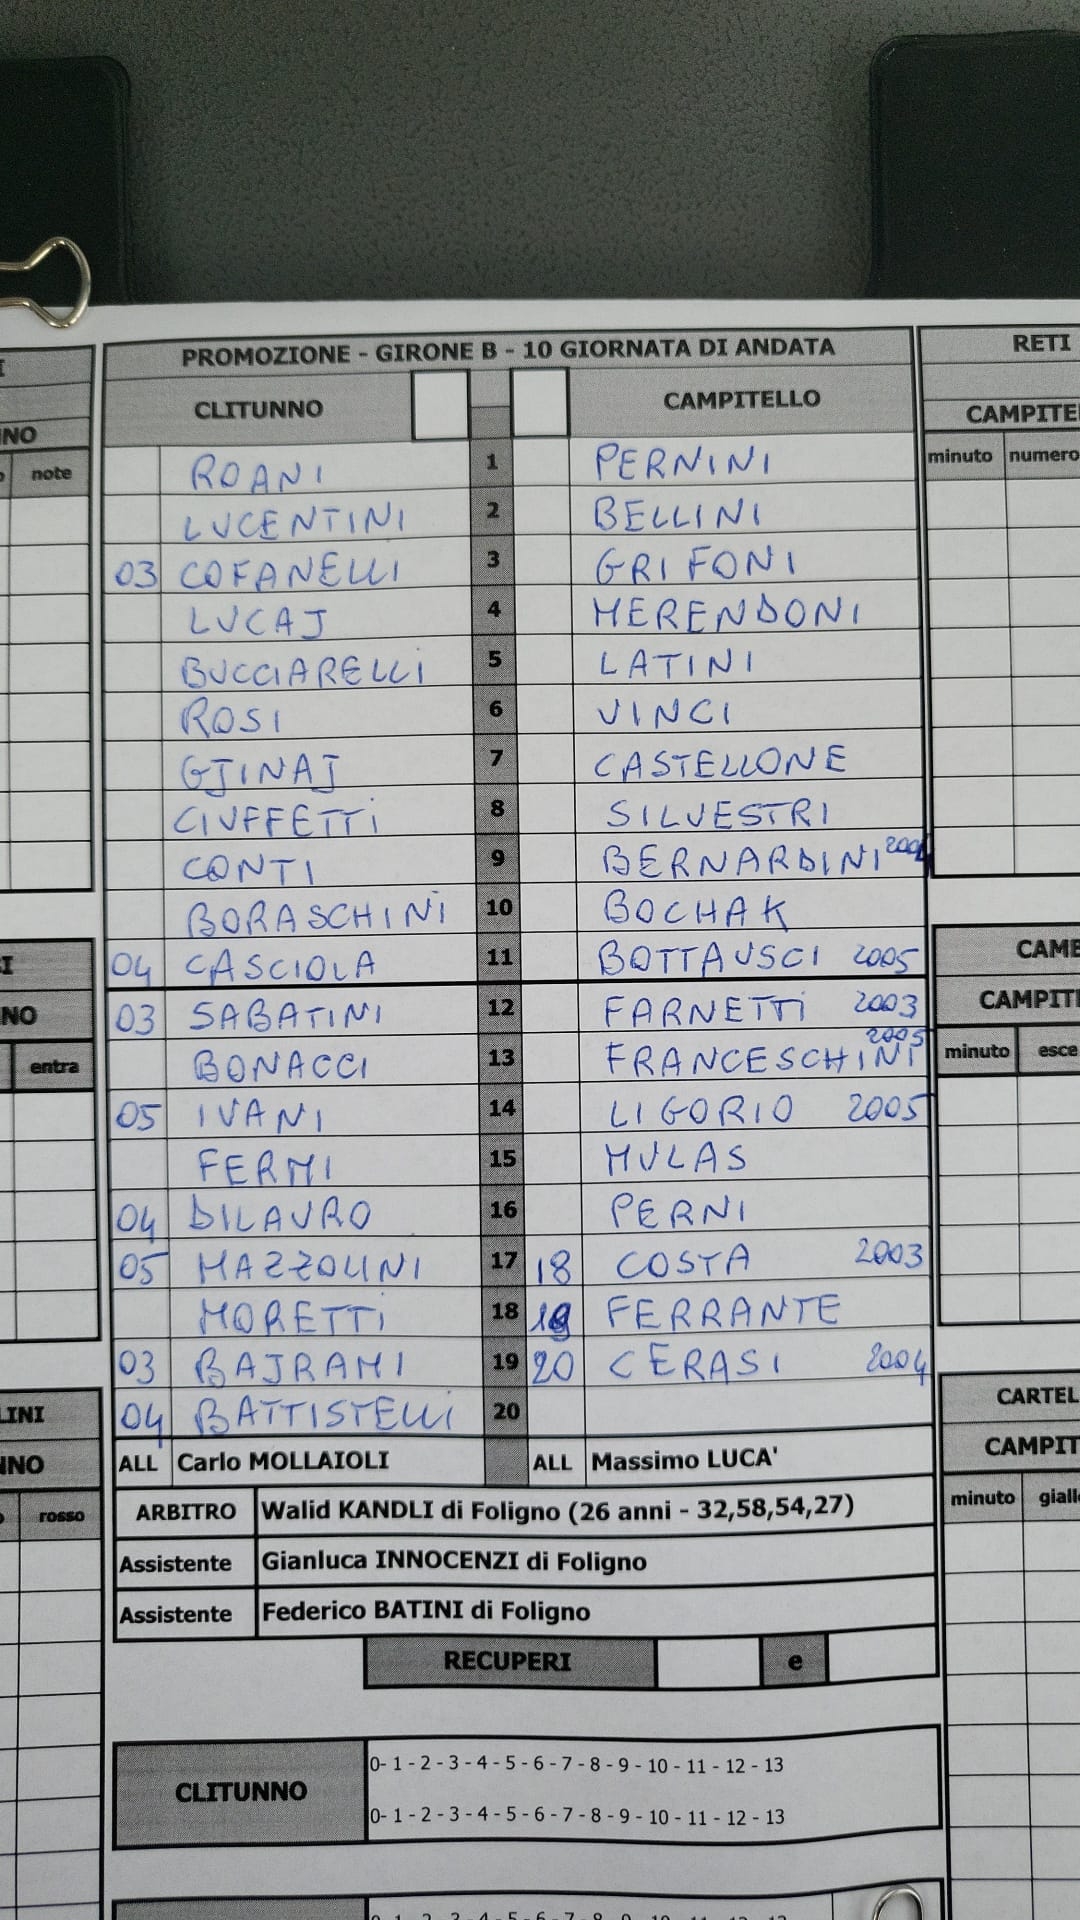 PROMOZIONE - GIRONE B - 10 GIORNATA DI ANDATA RETI
CLITUNNO CAMPITELLO CAMPITE
NO
note minuto numero
ROANI 1 PERNINI
LUCENTINI 2 BELLINI
03 COFANELLI 3 GRIFONI
LUCAJ 4 MERENDONI
BUCCIARELLI 5 LATINI
ROSI 6 VINCI
GJINAJ 7 CASTELLONE
CIUFFETTI 8 SILVESTRI
CONTI 9 BERNARDINI
BORASCHINI 10 BOCHAK
04 CASCIOLA 11 BOTTAUSCI 2005 CAME
NO 03 SABATINI 12 FARNETTI 2003 CAMPITE
entra BONACCI 13 FRANCESCHINI 2005 minuto esce
05 IVANI 14 LIGORIO 2005
FERMI 15 MULAS
04 DILAURO 16 PERNI
05 MAZZOLINI 17 18 COSTA 2003
MORETTI 18 19 FERRANTE
03 BAJRAMI 19 20 CERASI 2004
LINI 04 BATTISTELLI 20 CARTEL
NNO ALL Carlo MOLLAIOLI ALL Massimo LUCA' CAMPIT
rosso ARBITRO Walid KANDLI di Foligno (26 anni - 32,58,54,27) minuto giall
Assistente Gianluca INNOCENZI di Foligno
Assistente Federico BATINI di Foligno
RECUPERI e
CLITUNNO
0- 1 - 2 - 3 - 4 - 5 - 6 - 7 - 8 - 9 - 10 - 11 - 12 - 13
0- 1 - 2 - 3 - 4 - 5 - 6 - 7 - 8 - 9 - 10 - 11 - 12 - 13